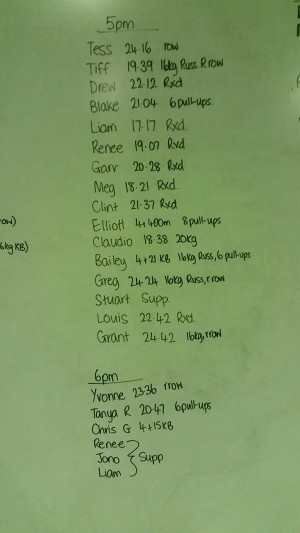 5pm
Tess 24.16 row
Tiff 19.39 16kg Russ. R row
Drew 22.12 Rxd
Blake 21.04 6 pull-ups.
Liam 17.17 Rxd.
Renee 19.07 Rxd
Garr 20.28 Rxd
Meg 18.21 Rxd.
Clint 21.37 Rxd
Elliott 4+400m 8 pull-ups
Claudio 18.38 20kg
Bailey 4+21 KB 16kg Russ, 6 pull-ups
Greg 24.24 16kg Russ, r row
Stuart Supp.
Louis 22.42 Rxd
Grant 24.42 16kg, rrow
ow)
6kg KB)
6pm
Yvonne 23.36 rrow
Tanya R 20.47 6 pull-ups
Chris G 4+15 KB
Renee
Jono } Supp
Liam